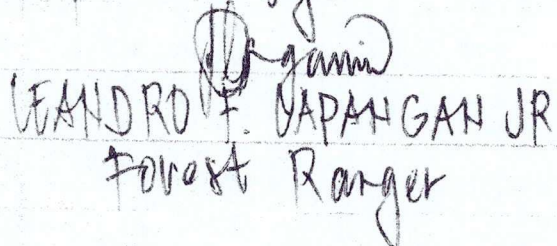 LEANDRO F. DAPANGAN JR
Forest Ranger